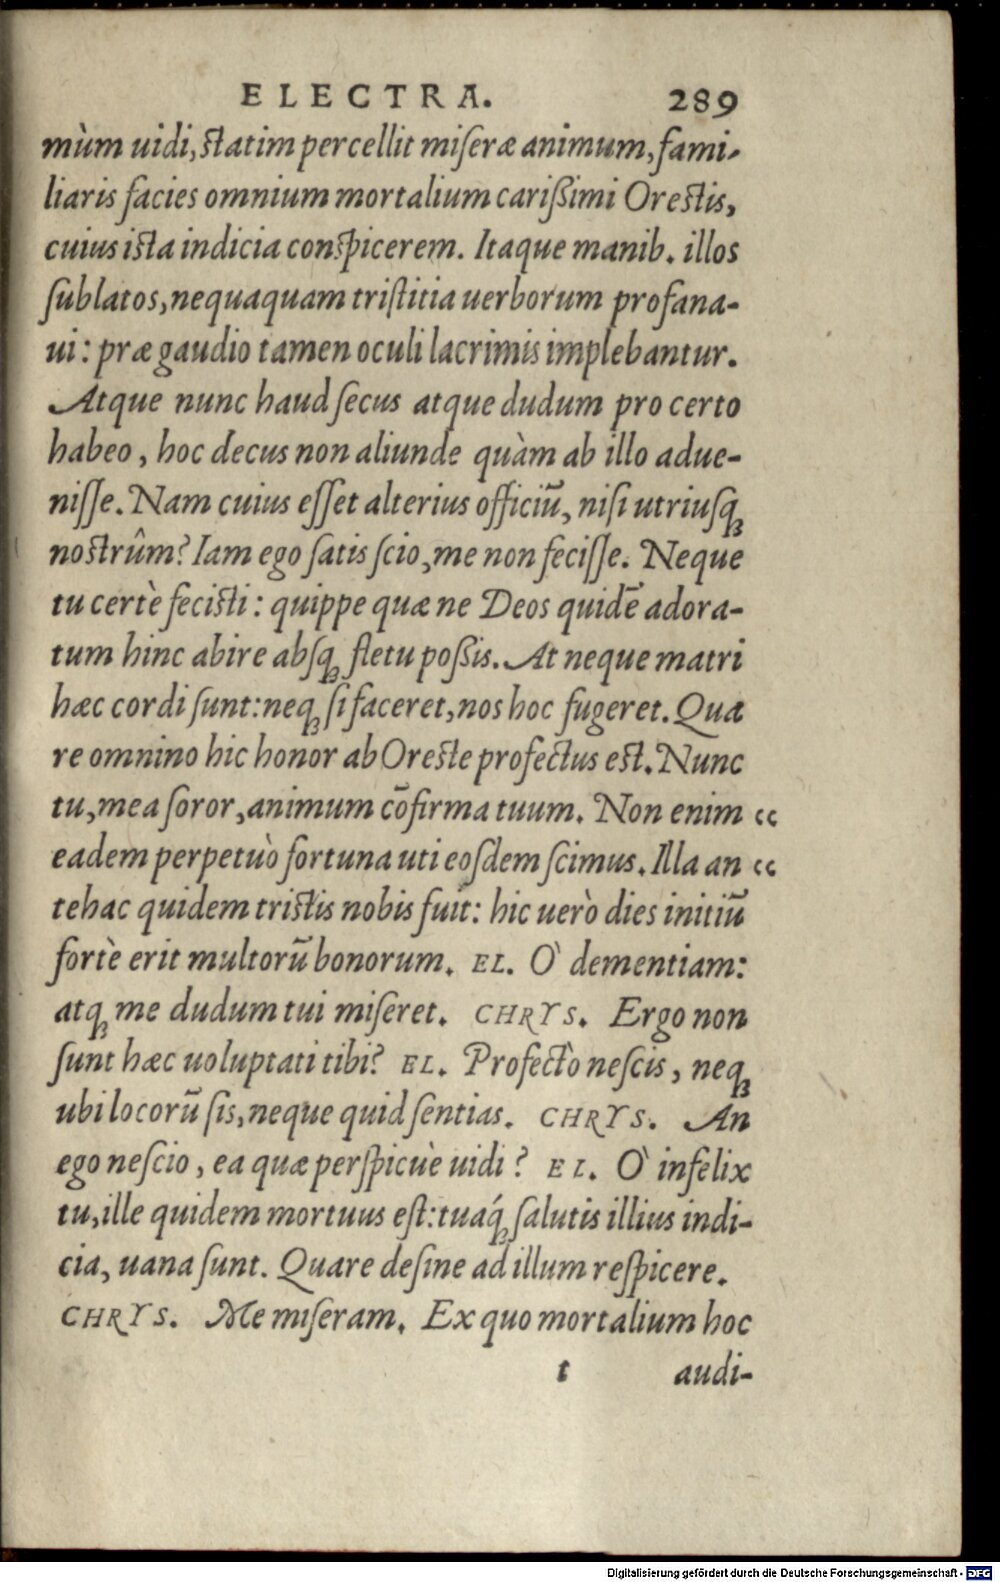 ELECTRA. 289
mùm uidi, ſtatim percellit miſeræ animum, fami-
liaris facies omnium mortalium carißimi Oreſtis,
cuius iſta indicia conſpicerem. Itaque manib. illos
ſublatos, nequaquam triſtitia uerborum profana-
ui: præ gaudio tamen oculi lacrimis implebantur.
Atque nunc haud ſecus atque dudum pro certo
habeo, hoc decus non aliunde quàm ab illo adue-
niſſe. Nam cuius eſſet alterius officiū, niſi utriuſq;
noſtrûm? Iam ego ſatis ſcio, me non feciſſe. Neque
tu certè feciſti: quippe quæ ne Deos quidē adora-
tum hinc abire abſq; fletu poßis. At neque matri
hæc cordi ſunt: neq; ſi faceret, nos hoc fugeret. Qua
re omnino hic honor ab Oreſte profectus eſt. Nunc
tu, mea ſoror, animum cōfirma tuum. Non enim “
eadem perpetuò fortuna uti eoſdem ſcimus. Illa an “
tehac quidem triſtis nobis fuit: hic uerò dies initiū
fortè erit multorū bonorum. EL. Ò dementiam:
atq; me dudum tui miſeret. CHRYS. Ergo non
ſunt hæc uoluptati tibi? EL. Profectò neſcis, neq;
ubi locorū ſis, neque quid ſentias. CHRYS. An
ego neſcio, ea quæ perſpicuè uidi? EL. Ò infelix
tu, ille quidem mortuus eſt: tuaq́; ſalutis illius indi-
cia, uana ſunt. Quare deſine ad illum reſpicere.
CHRYS. Me miſeram. Ex quo mortalium hoc
t audi-
Digitalisierung gefördert durch die Deutsche Forschungsgemeinschaft - DFG